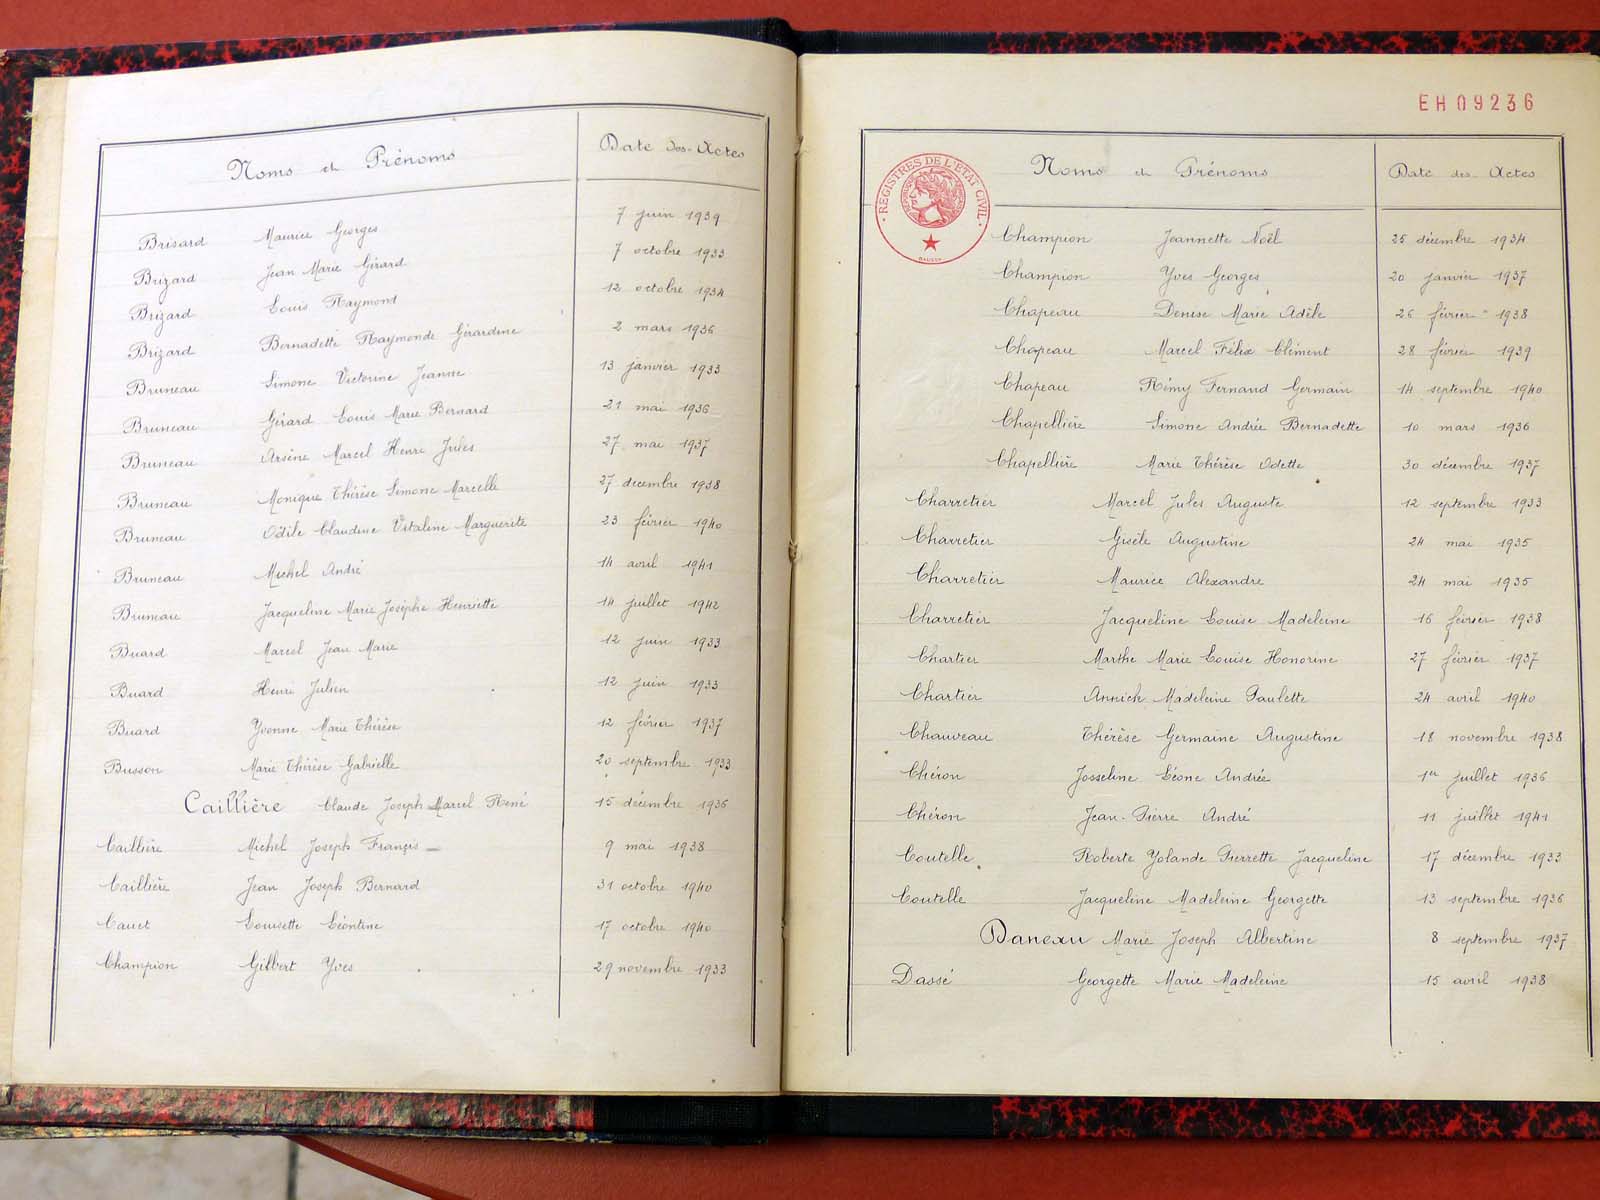 Noms et Prénoms Date des Actes
Brisard Maurice Georges 7 juin 1939
Brizard Jean Marie Gérard 7 octobre 1933
Brizard Louis Raymond 12 octobre 1934
Brizard Bernadette Raymonde Gérardine 2 mars 1936
Bruneau Simone Victorine Jeanne 13 janvier 1933
Bruneau Gérard Louis Marie Bernard 21 mai 1936
Bruneau Arsène Marcel Henri Jules 27 mai 1937
Bruneau Monique Thérèse Simone Marcelle 27 décembre 1938
Bruneau Odile Claudine Vitaline Marguerite 23 février 1940
Bruneau Michel André 14 avril 1941
Bruneau Jacqueline Marie Josèphe Henriette 14 juillet 1942
Buard Marcel Jean Marie 12 juin 1933
Buard Henri Julien 12 juin 1933
Buard Yvonne Marie Thérèse 12 février 1937
Busson Marie Thérèse Gabrielle 20 septembre 1933
Caillière Claude Joseph Marcel René 15 décembre 1936
Caillière Michel Joseph François 9 mai 1938
Caillière Jean Joseph Bernard 31 octobre 1940
Cauet Louisette Léontine 17 octobre 1940
Champion Gilbert Yves 29 novembre 1933
EH09236
REGISTRES DE L'ETAT CIVIL
Noms et Prénoms Date des Actes
Champion Jeannette Noël 25 décembre 1934
Champion Yves Georges 20 janvier 1937
Chapeau Denise Marie Adèle 26 février 1938
Chapeau Marcel Félix Clément 28 février 1939
Chapeau Rémy Fernand Germain 14 septembre 1940
Chapellière Simone Andrée Bernadette 10 mars 1936
Chapellière Marie Thérèse Odette 30 décembre 1937
Charretier Marcel Jules Auguste 12 septembre 1933
Charretier Gisèle Augustine 24 mai 1935
Charretier Maurice Alexandre 24 mai 1935
Charretier Jacqueline Louise Madeleine 16 février 1938
Chartier Marthe Marie Louise Honorine 27 février 1937
Chartier Annick Madeleine Paulette 24 avril 1940
Chauveau Thérèse Germaine Augustine 18 novembre 1938
Chéron Josseline Léone Andrée 1er juillet 1936
Chéron Jean-Pierre André 11 juillet 1941
Coutelle Roberte Yolande Pierrette Jacqueline 17 décembre 1933
Coutelle Jacqueline Madeleine Georgette 13 septembre 1936
Daneau Marie Joseph Albertine 8 septembre 1937
Dassé Georgette Marie Madeleine 15 avril 1938